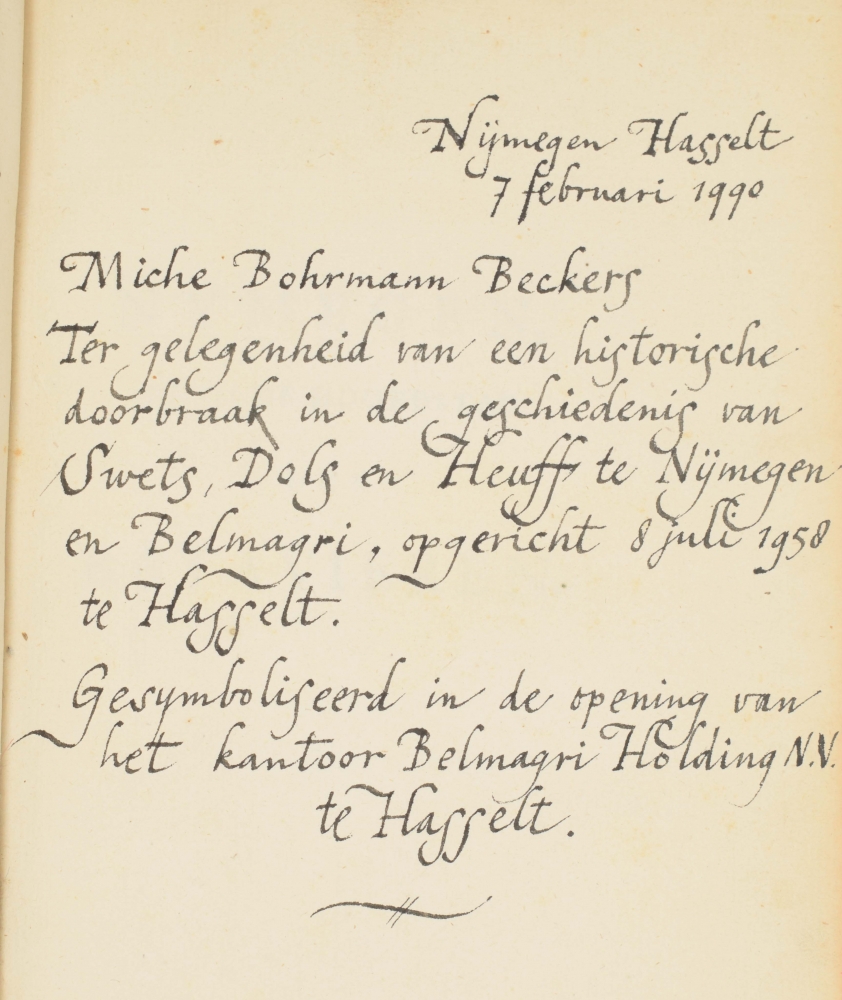 Nijmegen Hasselt
7 februari 1990
Miche Bohrmann Beckers
Ter gelegenheid van een historische
doorbraak in de geschiedenis van
Swets, Dols en Heuff te Nijmegen
en Belmagri, opgericht 8 juli 1958
te Hasselt.
Gesymboliseerd in de opening van
het kantoor Belmagri Holding N.V.
te Hasselt.